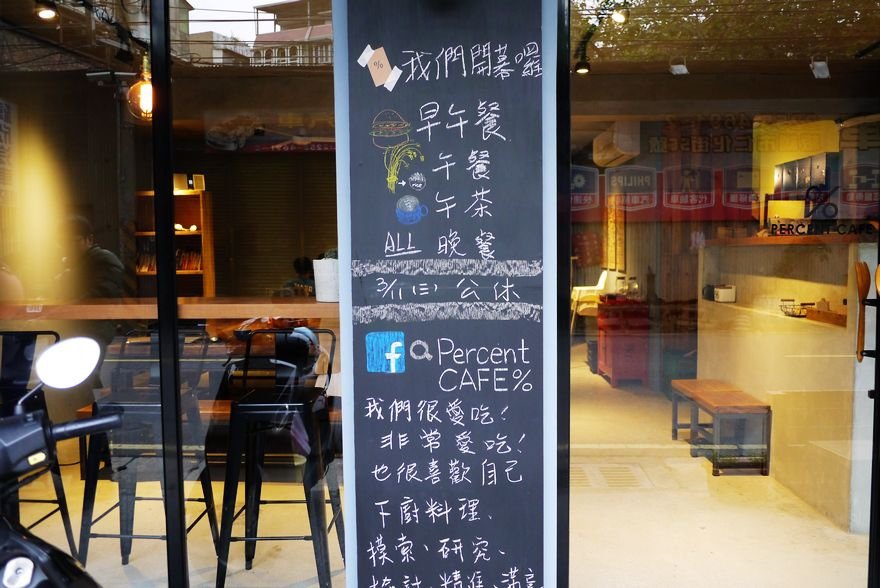 % 我們開幕囉
早午餐
午餐
rice
午茶
ALL 晚餐
3/1(三) 公休
f Percent
CAFE%
我們很愛吃!
非常愛吃!
也很喜歡自己
下廚料理、
摸索、研究、
檢討、精進、滿高
%
PERCENT CAFE
PHILIPS